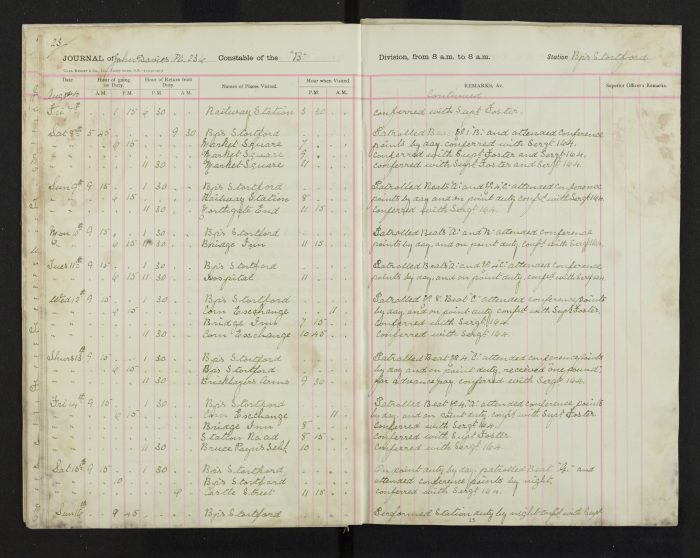 23
JOURNAL of John Davies Pc 234 Constable of the "B" Division, from 8 a.m. to 8 a.m. Station Bp's Stortford
Date Hour of going on Duty. Hour of Return from Duty. Names of Places Visited. Hour when Visited. REMARKS, &c. Superior Officer's Remarks.
A.M. P.M. A.M. P.M. P.M. A.M.
continued
Fri 7th 1 15 6 30 Railway Station 3 30 conferred with Supt Foster.
Sat 8th 5 45 9 30 Bp's Stortford Patrolled "B" and attended conference
6 15 Market Square points by day. conferred with Sergt 164.
Market Square 9 conferred with Supt Foster and Sergt 164.
11 30 Market Square 11 conferred with Supt Foster and Sergt 164.
Sun 9th 9 15 1 30 Bp's Stortford Patrolled Beats attended conference
6 15 Railway Station 8 points by day and on point duty confd with Sergt 164.
11 30 Northgate End 11 15 conferred with Sergt 164.
Mon 10th 9 15 1 30 Bp's Stortford Patrolled Beats attended conference
6 15 11 30 Bridge Inn 11 15 points by day, and on point duty, confd with Sergt 164.
Tues 11th 9 15 1 30 Bp's Stortford Patrolled Beats attended conference
6 15 11 30 Hospital 11 points by day, and on point duty, confd with Sergt 164
Wed 12th 9 15 1 30 Bp's Stortford Patrolled Beat "C" attended conference points
6 15 Corn Exchange 11 by day and on point duty confd with Supt Foster.
Bridge Inn 7 15 conferred with Sergt 164.
11 30 Corn Exchange 10 45 conferred with Sergt 164.
Thurs 13th 9 15 1 30 Bp's Stortford Patrolled Beat attended conference points
6 15 Bp's Stortford by day and on point duty, received one pound
11 30 Bricklayers Arms 9 30 for advance pay conferred with Sergt 164.
Fri 14th 9 15 1 30 Bp's Stortford Patrolled Beat attended conference points
6 15 Corn Exchange 11 by day, and on point duty confd with Supt Foster
Bridge Inn 8 conferred with Sergt 164.
Station Road 8 15 conferred with Supt Foster.
11 30 10 conferred with Sergt 164.
Sat 15th 9 15 1 30 Bp's Stortford On point duty by day. patrolled Beat "4" and
10 Bp's Stortford attended conference points by night,
9 Castle Street 11 15 conferred with Sergt 164.
Sun 16th 9 45 Bp's Stortford Performed Station duty by night confd with Supt
15